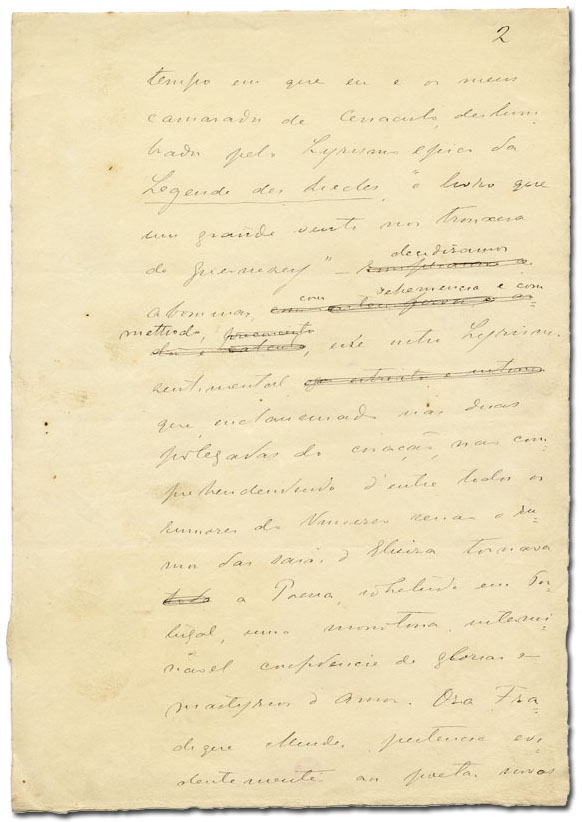 2
tempo em que eu e os meus
camaradas de Cenaculo, deslum-
brados pelo Lyrismo epico da
Legende des Siecles, "o livro que
um grande vento nos trouxera
de Guernesey" –
decidiramos
abominar, com vehemencia e com
methodo,
esse outro Lyrismo
sentimental
que, enclausurado nas duas
polegadas do coração, não com-
prehendendo d'entre todos os
rumores do Universo senão o ru-
mor das saias d'Elvira, tornava
a Poesia, sobretudo em Por-
tugal, uma monotona, intermi-
navel confidencia de glorias e
martyrios d'amor. Ora Fra-
dique Mendes pertencia evi-
dentemente aos poetas novos